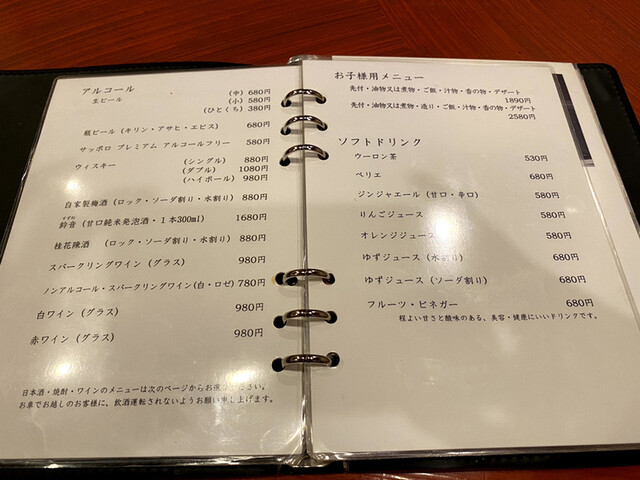 アルコール
生ビール (中) 680円
(小) 580円
(ひとくち) 380円
瓶ビール (キリン・アサヒ・エビス) 680円
サッポロ プレミアム アルコールフリー 580円
ウィスキー (シングル) 880円
(ダブル) 1080円
(ハイボール) 980円
自家製梅酒 (ロック・ソーダ割り・水割り) 880円
すずね
鈴音 (甘口純米発泡酒・1本300ml) 1680円
桂花陳酒 (ロック・ソーダ割り・水割り) 880円
スパークリングワイン (グラス) 980円
ノンアルコール・スパークリングワイン(白・ロゼ) 780円
白ワイン (グラス) 980円
赤ワイン (グラス) 980円
日本酒・焼酎・ワインのメニューは次のページからお選びください。
お車でお越しのお客様に、飲酒運転されないようお願い申し上げます。
お子様用メニュー
先付・油物又は煮物・ご飯・汁物・香の物・デザート
1890円
先付・油物又は煮物・造り・ご飯・汁物・香の物・デザート
2580円
ソフトドリンク
ウーロン茶 530円
ペリエ 680円
ジンジャエール (甘口・辛口) 580円
りんごジュース 580円
オレンジジュース 580円
ゆずジュース (水割り) 680円
ゆずジュース (ソーダ割り) 680円
フルーツ・ビネガー 680円
程よい甘さと酸味のある、美容・健康にいいドリンクです。